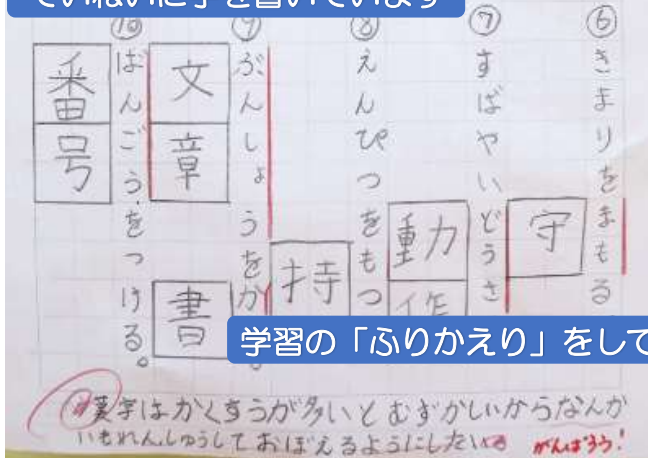 ていねいに字を書いています
⑥きまりをまもる
守
⑦すばやいどうさ
動作
⑧えんぴつをもつ
持
⑨ぶんしょうをかく。
文章
書
⑩ばんごうをつける。
番号
学習の「ふりかえり」をして
漢字はかくすうが多いとむずかしいからなんか
いもれんしゅうしておぼえるようにしたい
がんばろう!